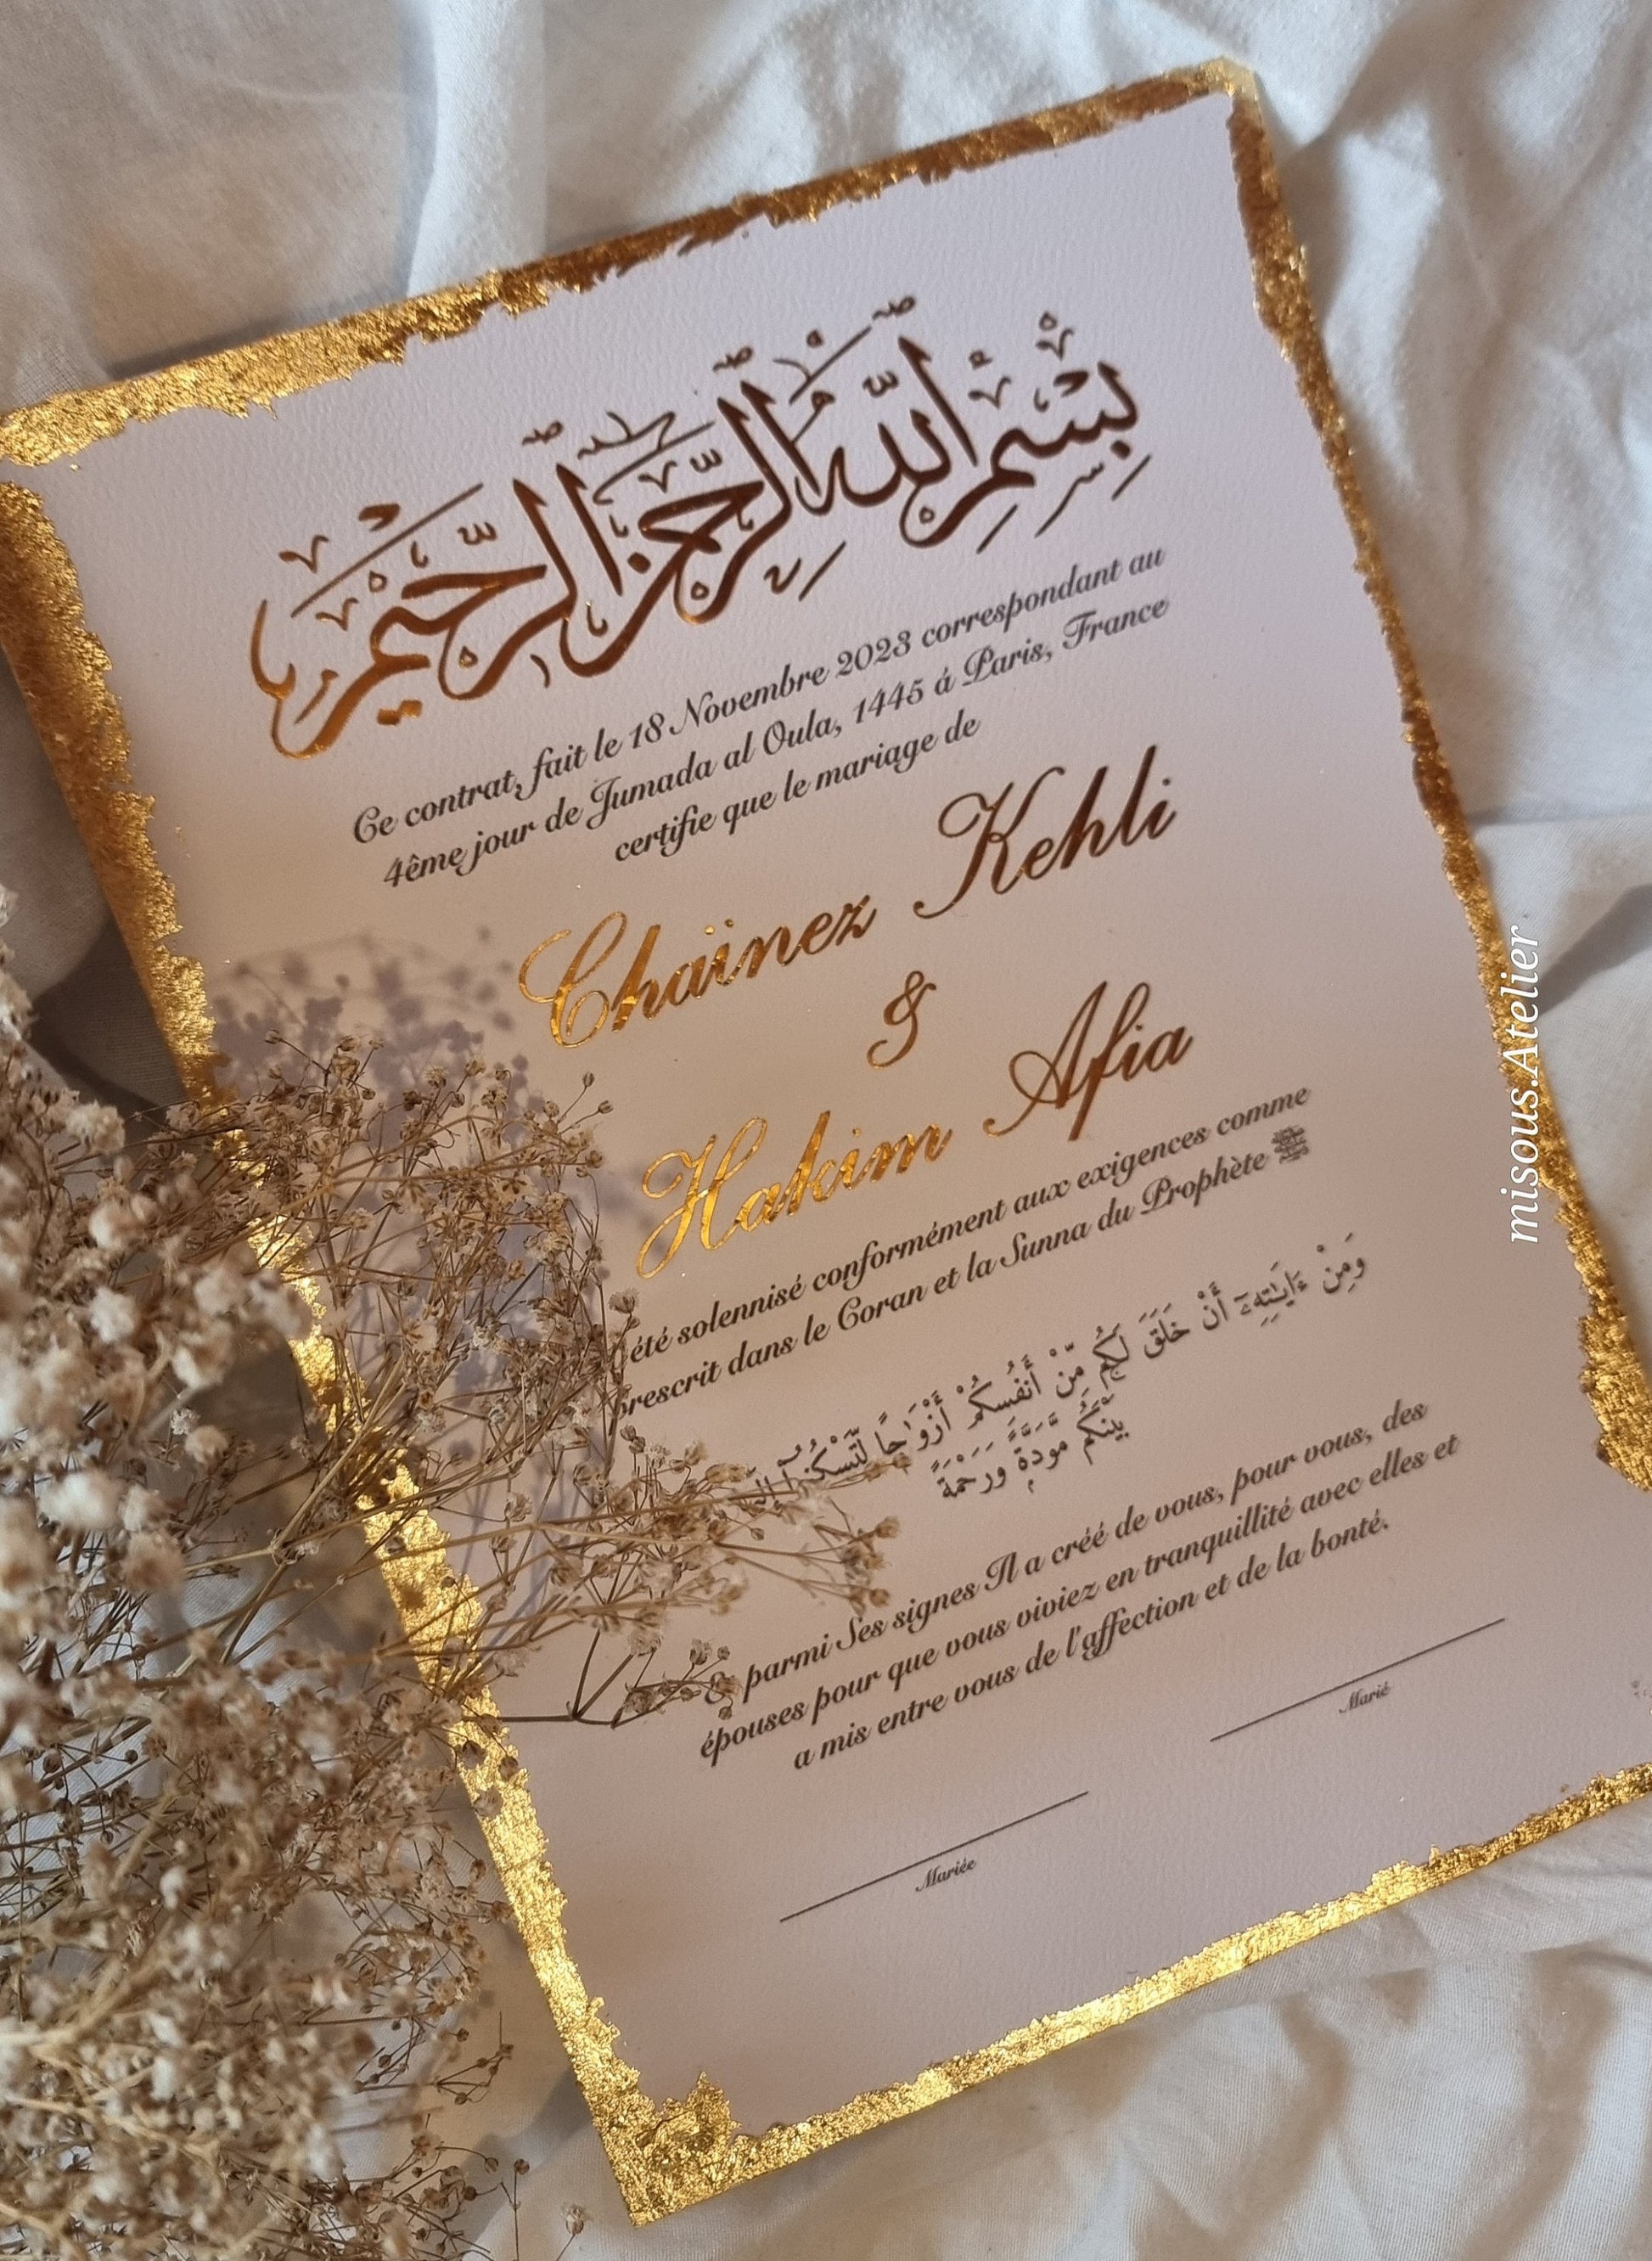 بِسْمِ اللَّهِ الرَّحْمَٰنِ الرَّحِيمِ
Ce contrat, fait le 18 Novembre 2023 correspondant au
4ême jour de Jumada al Oula, 1445 á Paris, France
certifie que le mariage de
Chaïnez Kehli
&
Hakim Afia
été solennisé conformément aux exigences comme
prescrit dans le Coran et la Sunna du Prophète ﷺ
وَمِنْ ءَايَٰتِهِۦٓ أَنْ خَلَقَ لَكُم مِّنْ أَنفُسِكُمْ أَزْوَٰجًا لِّتَسْكُنُوٓا۟
بَيْنَكُم مَّوَدَّةً وَرَحْمَةً
parmi Ses signes Il a créé de vous, pour vous, des
épouses pour que vous viviez en tranquillité avec elles et
a mis entre vous de l'affection et de la bonté.
Marié
Mariée
misous.Atelier